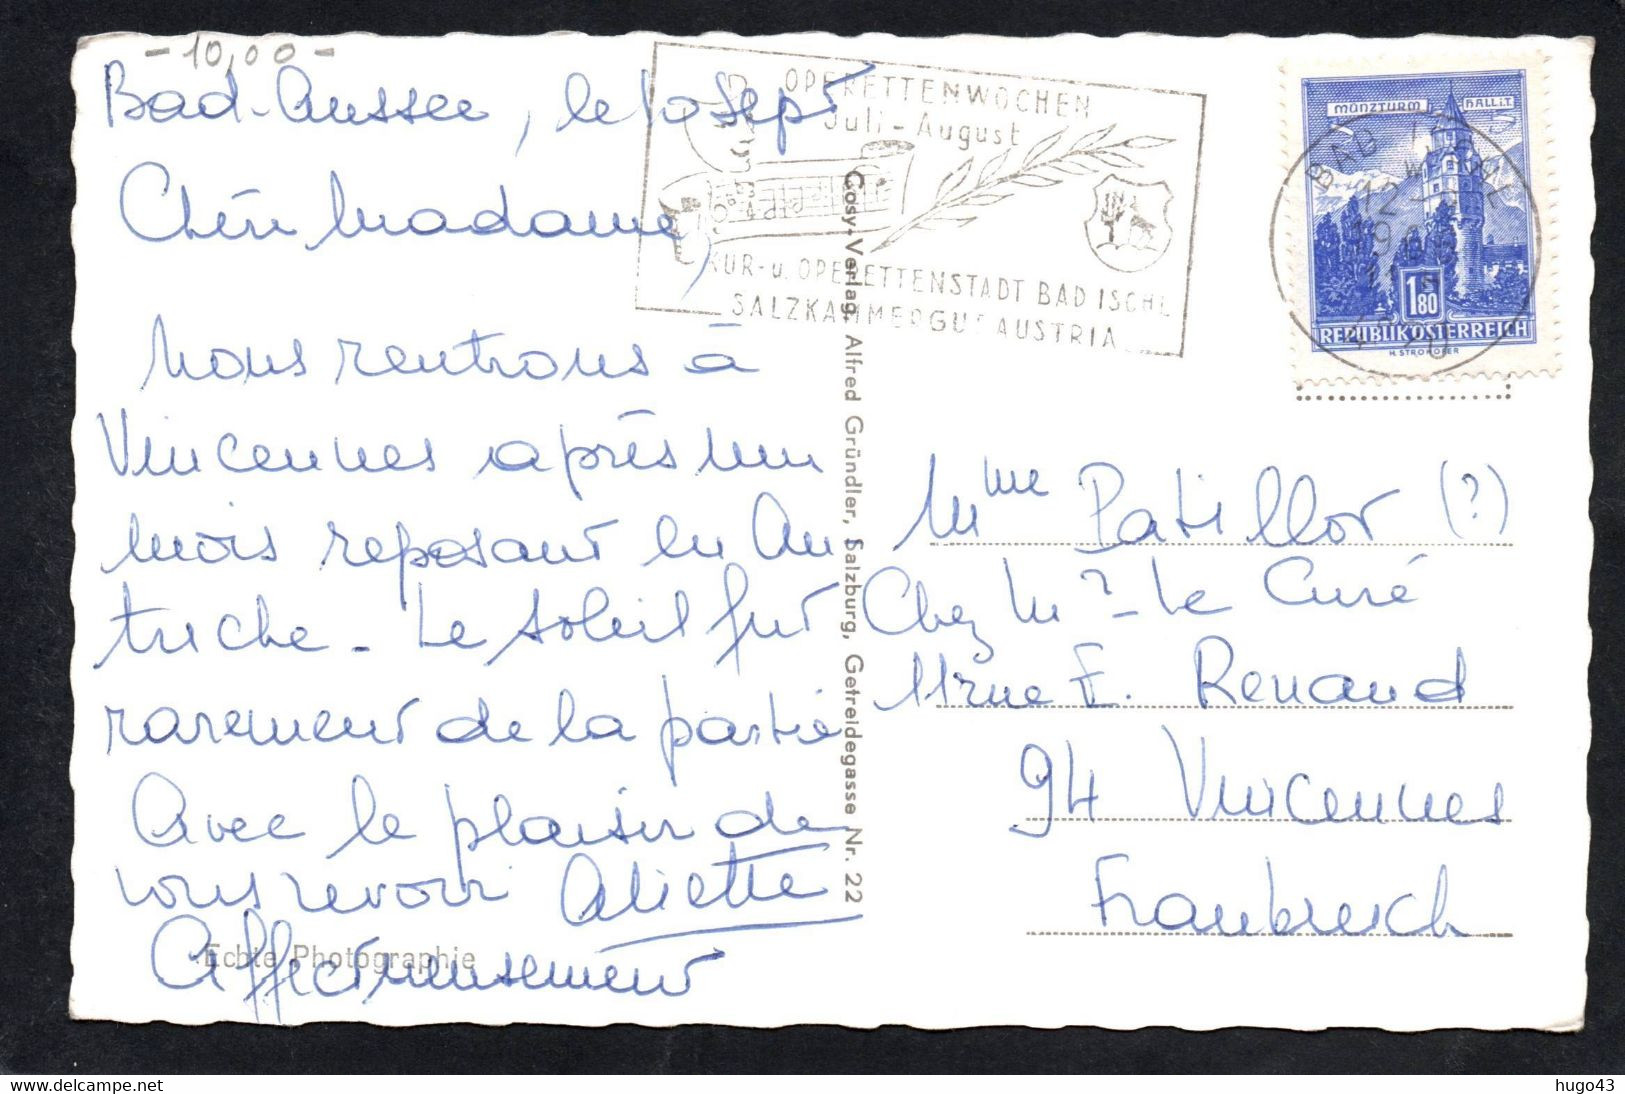 - 10,00 -
Bad-Aussee, le 10 Sept
Chère Madame,
Nous rentrons à
Vincennes après un
mois reposant en Au
triche - Le soleil fut
rarement de la partie
Avec le plaisir de
vous revoir Aliette
Affectueusement
Echte Photographie
OPERETTENWOCHEN
Juli - August
KUR- u. OPERETTENSTADT BAD ISCHL
SALZKAMMERGUT AUSTRIA
Cosy-Verlag, Alfred Gründler, Salzburg, Getreidegasse Nr. 22
MÜNZTURM HALL i.T.
1.80
REPUBLIK ÖSTERREICH
H. STROHOFER
BAD ISCHL
4820
Mme Patillot (?)
Chez Mr Le Curé
11 rue E. Renaud
94 Vincennes
Frankreich
hugo43